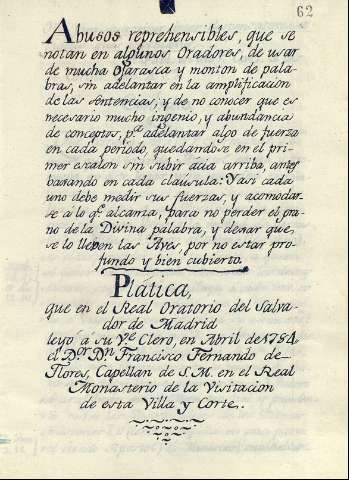 62
Abusos reprehensibles, que se
notan en algunos Oradores, de usar
de mucha ojarasca y monton de pala-
bras, sin adelantar en la amplificacion
de las sentencias, y de no conocer que es
necesario mucho ingenio, y abundancia
de conceptos, pª adelantar algo de fuerza
en cada periodo, quedandose en el pri-
mer escalon sin subir acia arriba, antes
baxando en cada clausula: Y asi cada
uno debe medir sus fuerzas, y acomodar-
se á lo qᵉ alcanza, para no perder el gra-
no de la Divina palabra, y dexar que,
se lo lleven las Aves, por no estar pro-
fundo y bien cubierto.
Plática,
que en el Real Oratorio del Salva-
dor de Madrid
leyó á su Vᵉ Clero, en Abril de 1784,
el Dᵒʳ Dⁿ Francisco Fernando de-
Flores, Capellan de S.M. en el Real
Monasterio de la Visitacion
de esta Villa y Corte.